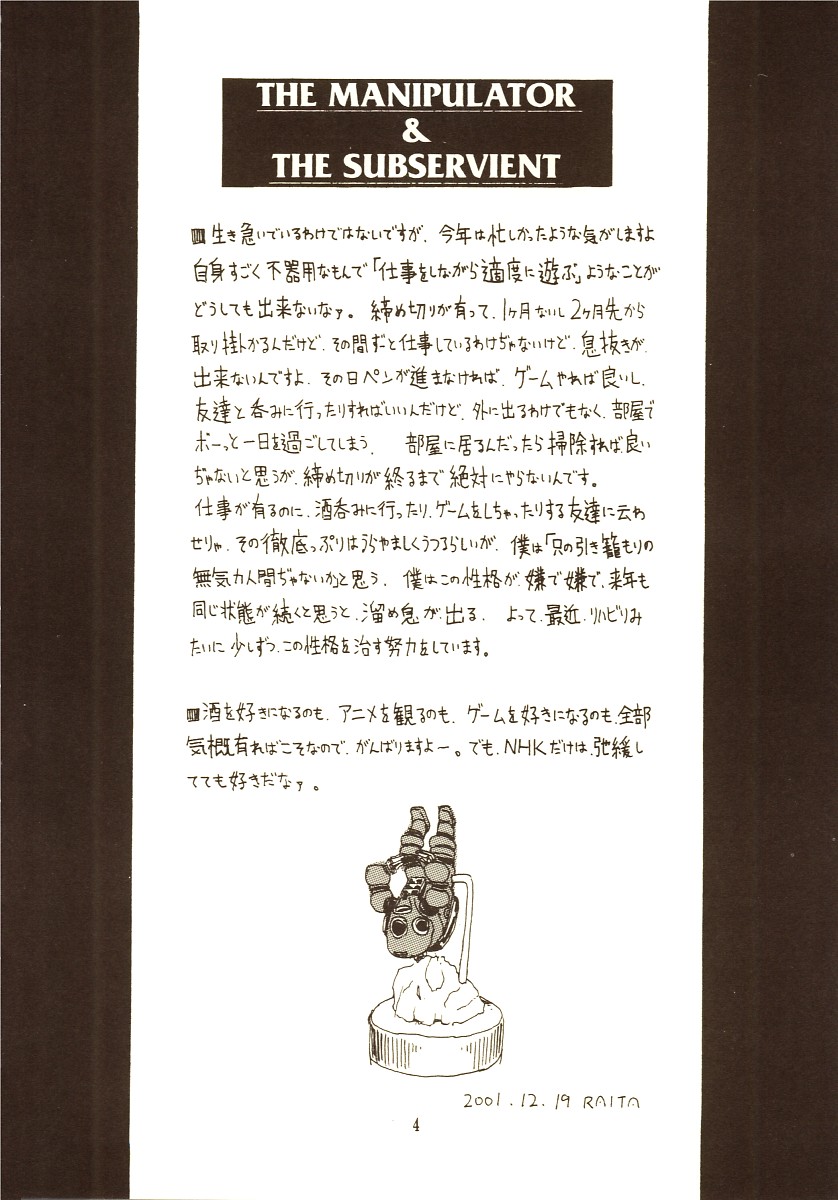 THE MANIPULATOR
&
THE SUBSERVIENT
生き急いでいるわけではないですが、今年は忙しかったような気がしますよ
自身すごく不器用なもんで「仕事をしながら適度に遊ぶ」ようなことが
どうしても出来ないなァ。締め切りが有って、1ヶ月ないし2ヶ月先から
取り掛かるんだけど、その間ずーと仕事しているわけぢゃないけど、息抜きが、
出来ないんですよ、その日ペンが進まなければ、ゲームやれば良いし、
友達と呑みに行ったりすればいいんだけど、外に出るわけでもなく、部屋で
ボーっと一日を過ごしてしまう、部屋に居るんだったら掃除すれば良い
ぢゃないと思うが、締め切りが終るまで絶対にやらないんです。
仕事が有るのに、酒呑みに行ったり、ゲームをしちゃったりする友達に云わ
せりゃ、その徹底っぷりはうらやましくうつるらしいが、僕は「只の引き籠もりの
無気力人間ぢゃないか」と思う、僕はこの性格が、嫌で嫌で、来年も
同じ状態が続くと思うと、溜め息が出る、よって、最近、リハビリみ
たいに少しずつ、この性格を治す努力をしています。
酒を好きになるのも、アニメを観るのも、ゲームを好きになるのも、全部
気概有ればこそなので、がんばりますよー。でも、NHKだけは、弛緩し
てても好きだなァ。
2001.12.19 RAITA
4